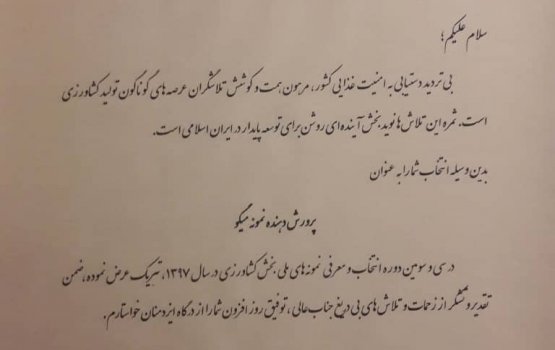 سلام علیکم؛
بی تردید دستیابی به امنیت غذایی کشور، مرهون همت و کوشش تلاشگران عرصه های گوناگون تولید کشاورزی
است. ثمره این تلاش ها نوید بخش آینده ای روشن برای توسعه پایدار در ایران اسلامی است.
بدین وسیله انتخاب شما را به عنوان
پرورش دهنده نمونه میگو
در سی و سومین دوره انتخاب و معرفی نمونه های ملی بخش کشاورزی در سال ۱۳۹۷، تبریک عرض نموده، ضمن
تقدیر و تشکر از زحمات و تلاش های بی دریغ جناب عالی، توفیق روز افزون شما را از درگاه ایزد منان خواستارم.